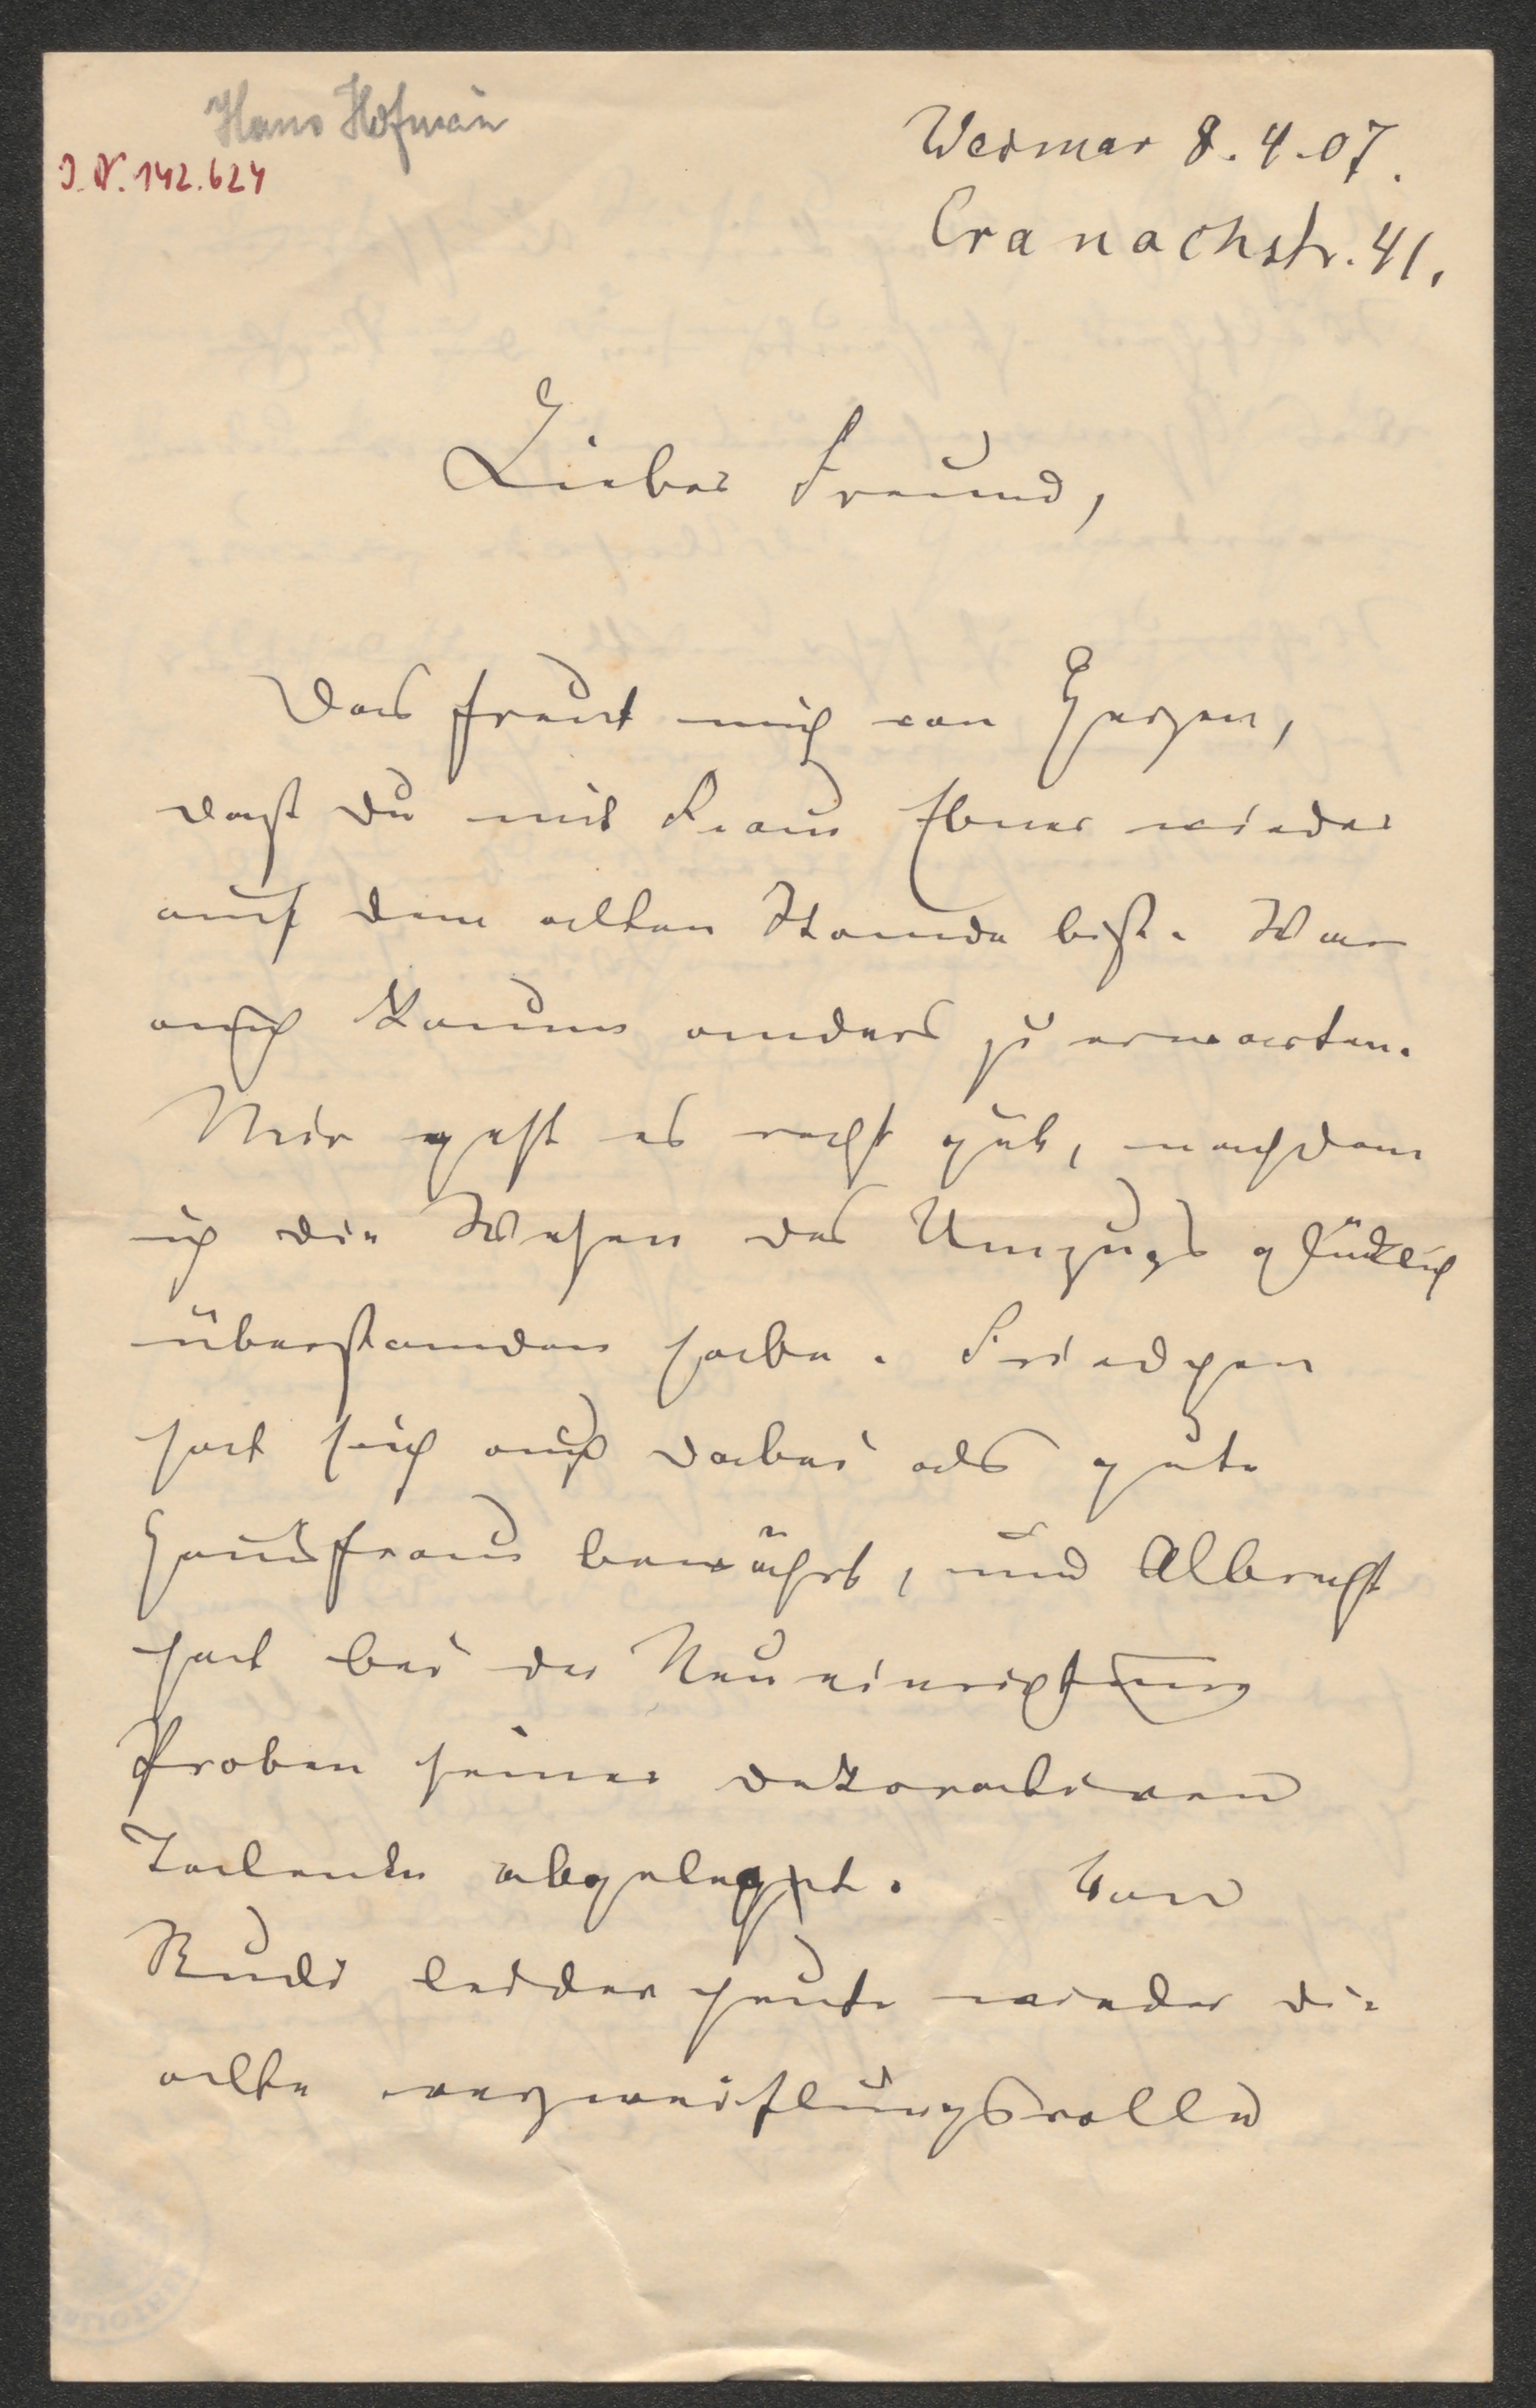 Hans Hofmann
I. N. 142.624
Weimar 8.4.07.
Cranachstr. 41.
Lieber Freund,
Das freut mich von Herzen,
daß du mit Frau Ebner wieder
auf dem alten Stande bist. War
auch kaum anders zu erwarten.
Mir geht es recht gut, nachdem
ich die Wehen des Umzugs glücklich
überstanden habe. Friedchen
hat sich auch dabei als gute
Hausfrau bewährt, und Albrecht
hat bei der Neueinrichtung
Proben seines dekorativen
Talents abgelegt.
Rudi leider heute wieder die
alte verzweiflungsvolle